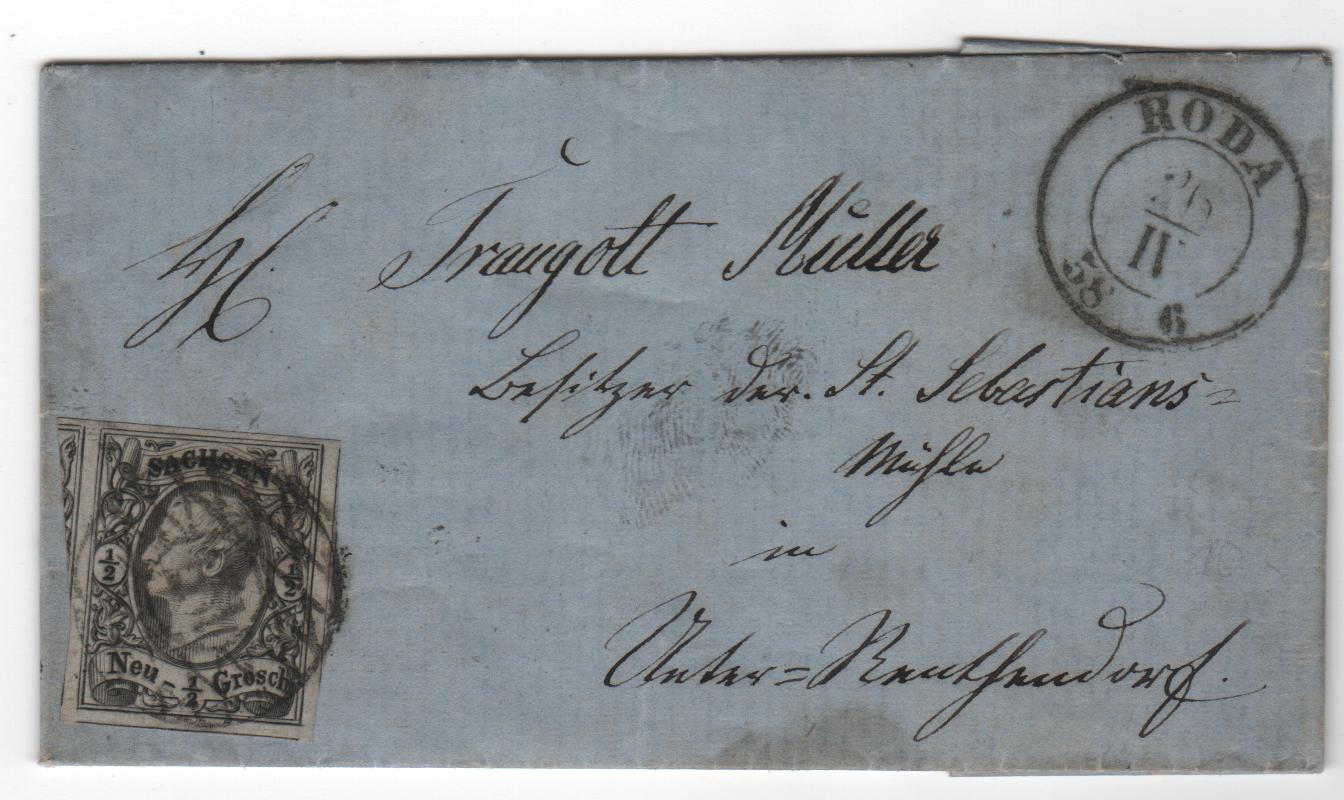 RODA
26
IV
58 6
H. Traugott Müller
Besitzer der St. Sebastians=
Mühle
in
Unter=Renthendorf.
SACHSEN
½ ½
Neu - ½ Grosch